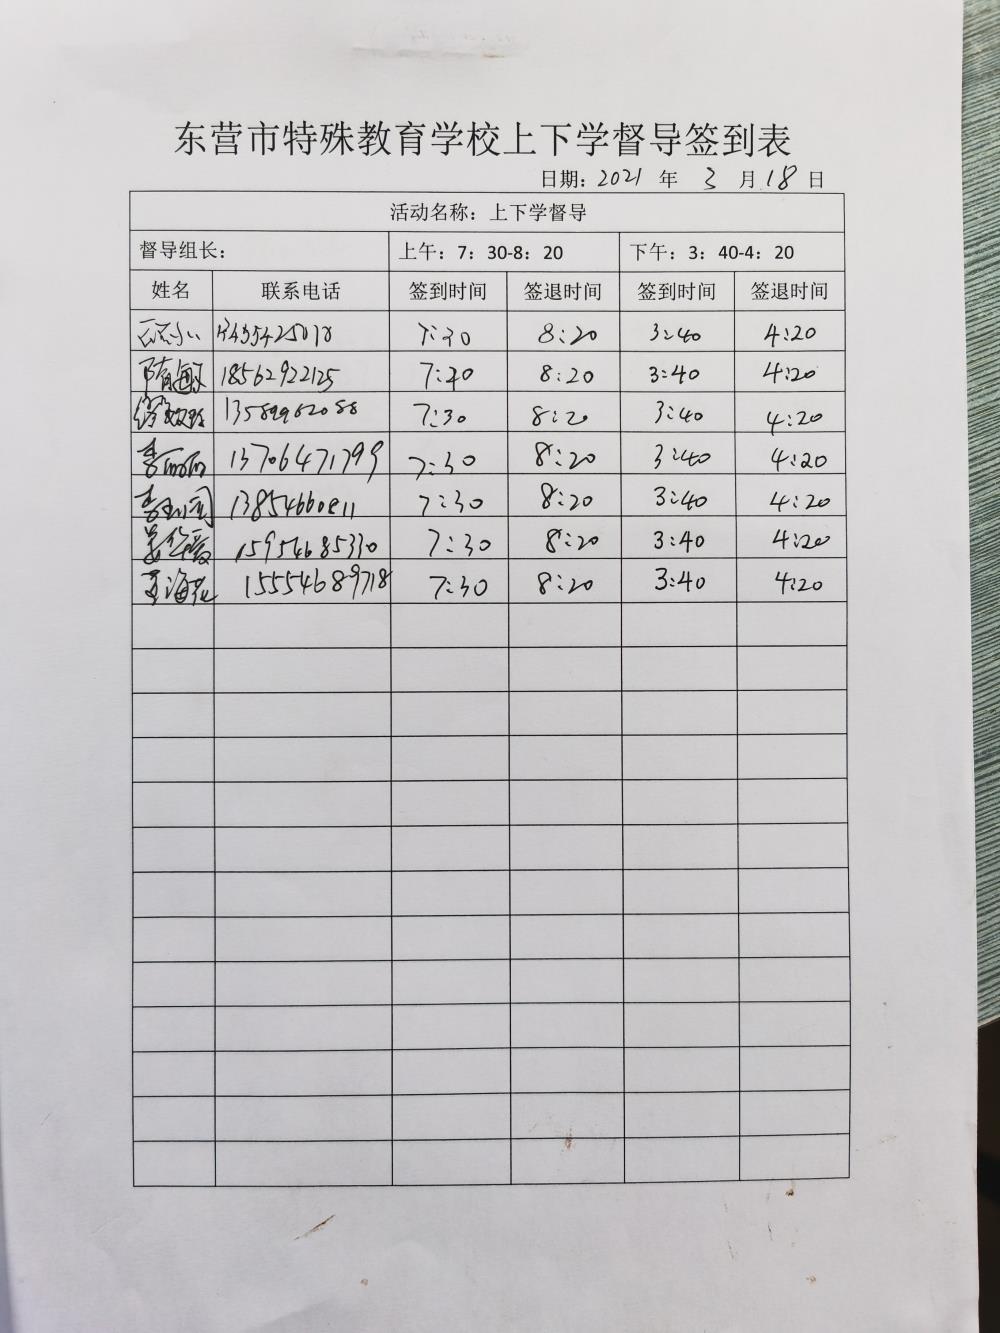 东营市特殊教育学校上下学督导签到表
日期：2021 年 3 月 18 日
活动名称：上下学督导
督导组长： 上午：7：30-8：20 下午：3：40-4：20
姓名 联系电话 签到时间 签退时间 签到时间 签退时间
7:30 8:20 3:40 4:20
隋 18562922125 7:30 8:20 3:40 4:20
13589962088 7:30 8:20 3:40 4:20
李丽丽 13706471799 7:30 8:20 3:40 4:20
李 13854660811 7:30 8:20 3:40 4:20
姜华 15954685330 7:30 8:20 3:40 4:20
王海花 15554689718 7:30 8:20 3:40 4:20